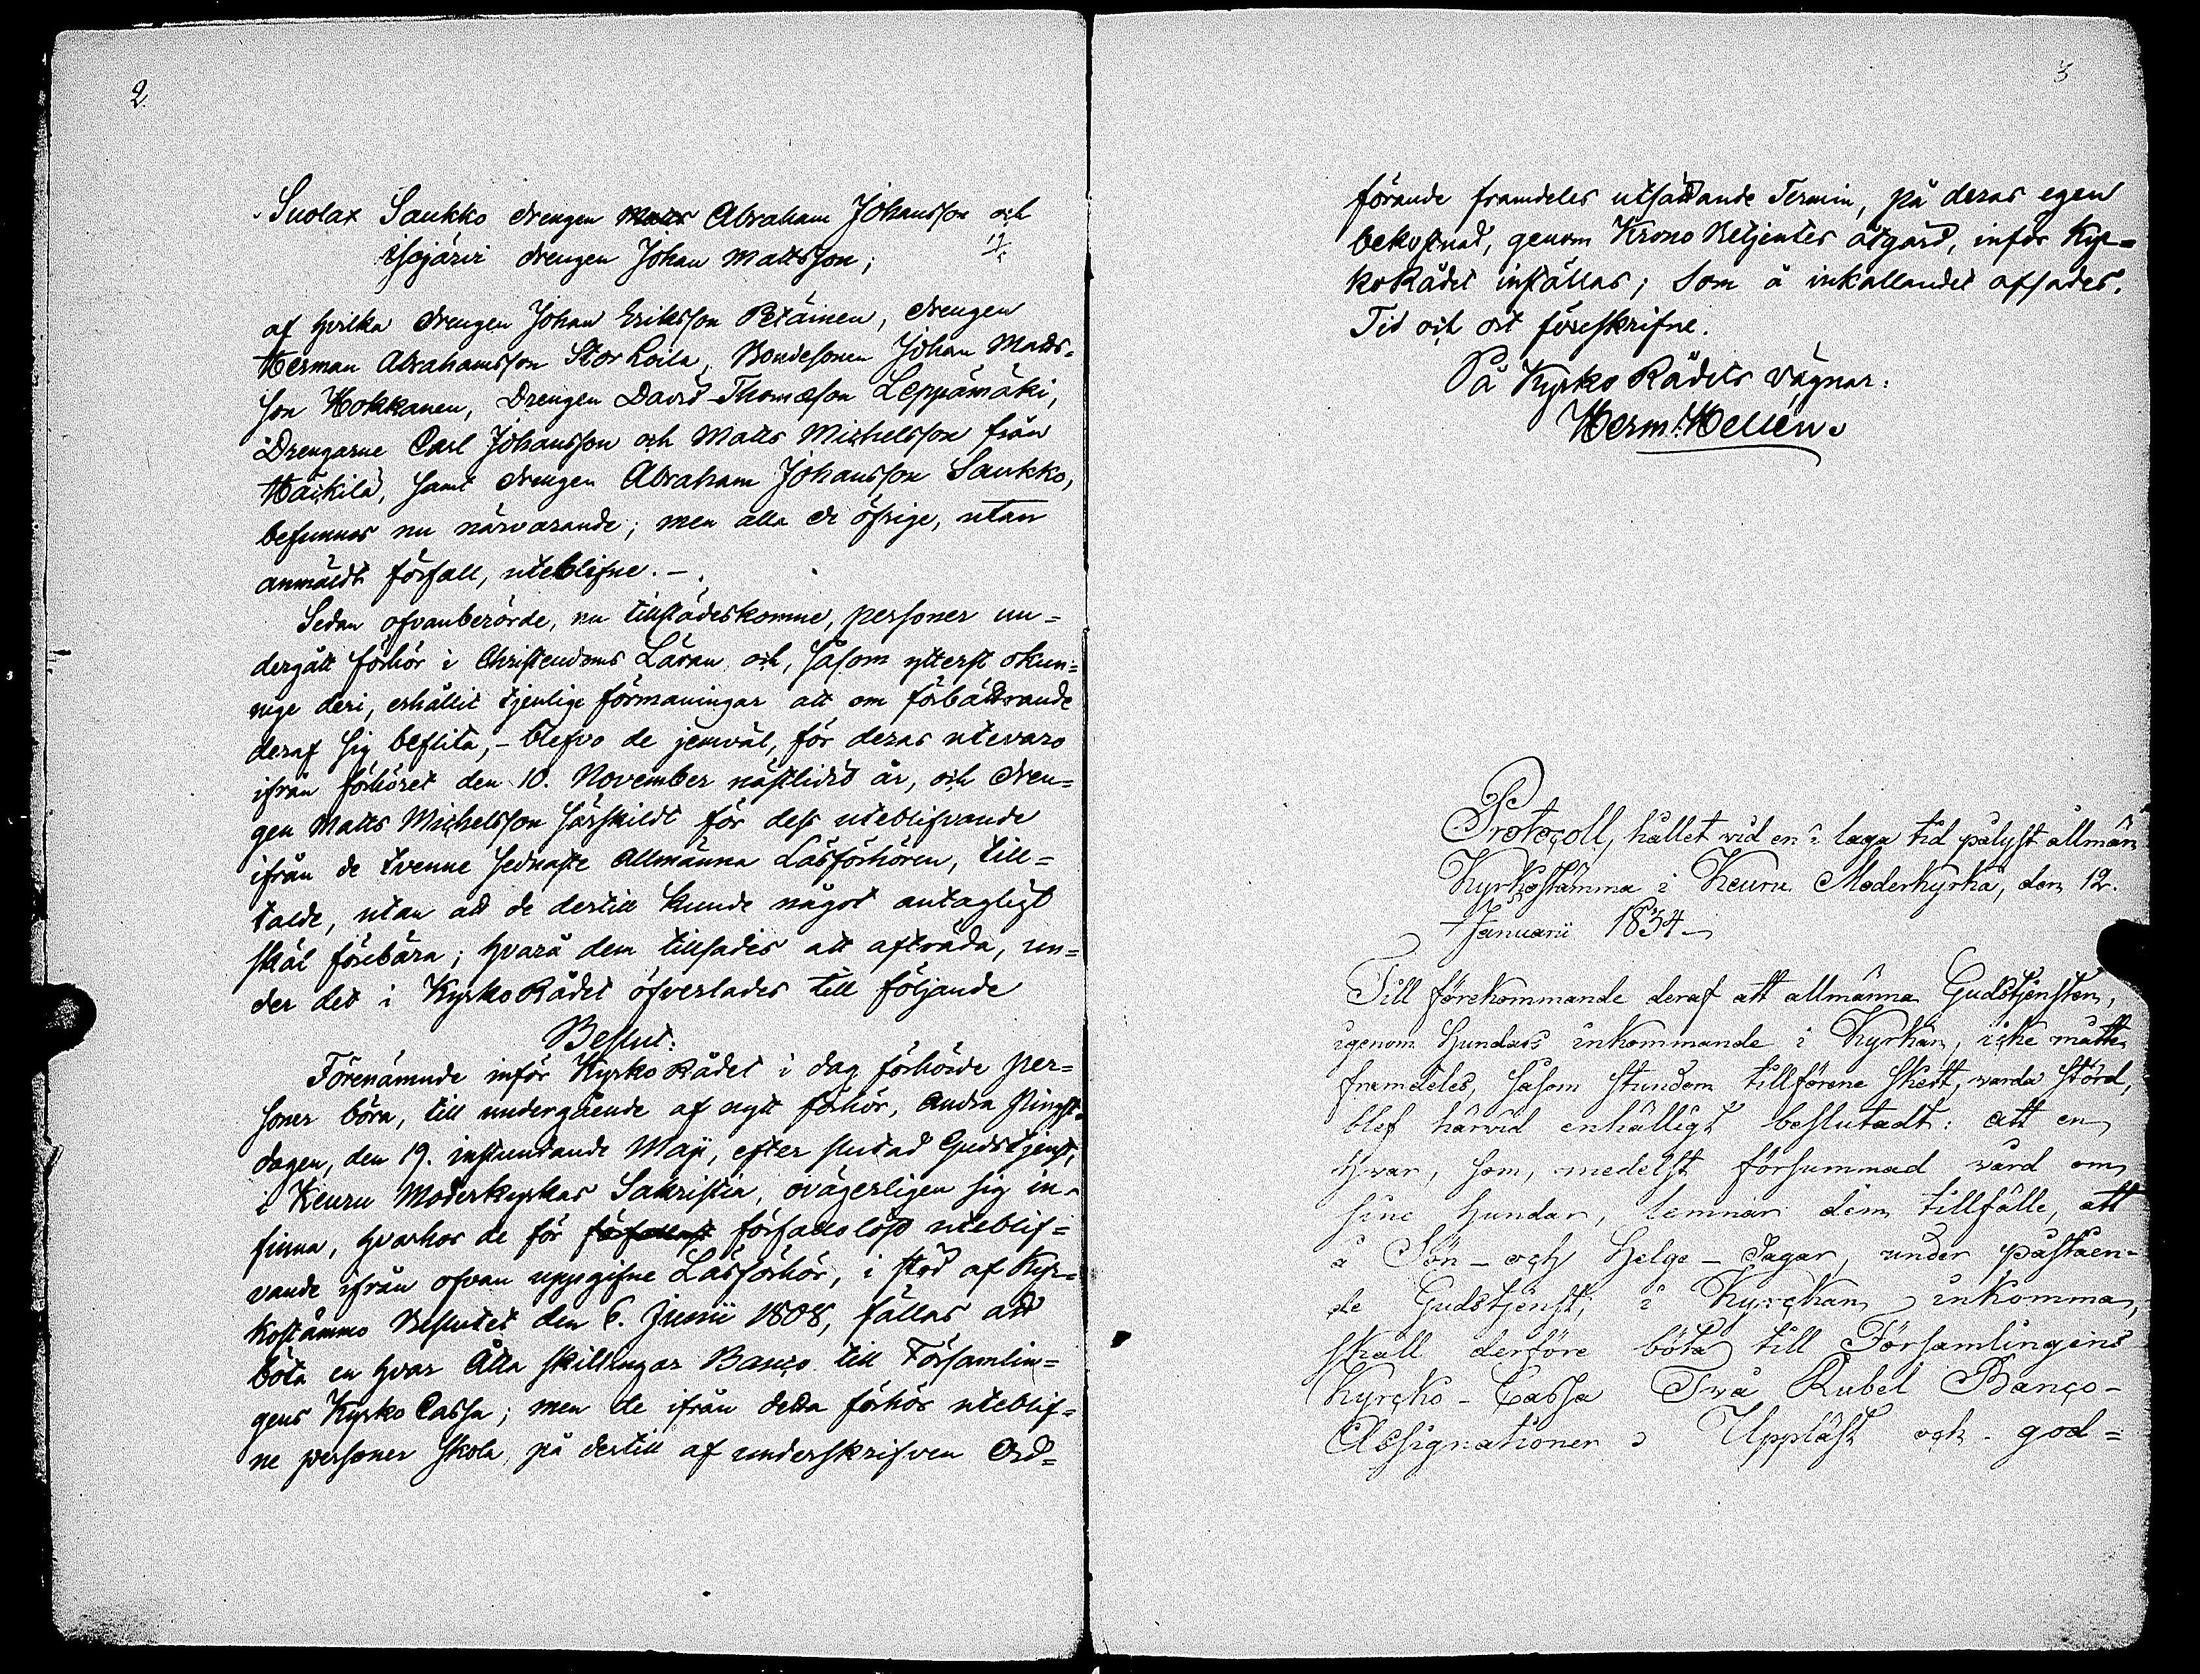 2.
Suolax Saukko drengen Matts Abraham Johansson och
Isojärvi drengen Johan Mattsson;
af hvilka drengen Johan Eriksson Petäinen, drengen
Herman Abrahamsson Stor Loila, Bondesonen Johan Matts-
son Hokkanen, Drengen David Thomæson Leppämäki,
Drengarne Carl Johansson och Matts Michelsson från
Häikilä, samt drengen Abraham Johansson Saukko,
befunnos nu närvarande; men alla de öfrige, utan
anmäldt förfall, uteblifne. —
Sedan ofvanberörde, nu tillstädeskomne, personer un-
dergått förhör i Christendoms Läran och, såsom ytterst okun-
nige deri, erhållit tjenlige förmaningar att om förbättrande
deraf sig beflita, – blefvo de jemväl, för deras utevaro
ifrån förhöret den 10. November nästlidit år, och dren-
gen Matts Michelsson särskildt för dess uteblifvande
ifrån de tvenne sednaste Allmänna Läsförhören, till-
talde, utan att de dertill kunde något antagligt
skäl förebära; hvarå dem tillsades att afträda, un-
der det i KyrkoRådet öfverlades till följande
Beslut:
Förenämnde inför KyrkoRådet i dag förhörde per-
soner böra, till undergående af nytt förhör, Andra Pingst-
dagen, den 19. instundande Maji, efter slutad Gudstjenst,
i Keuru Moderkyrkas Sakristia, ovägerligen sig in-
finna, hvarhos de för förfallost förfallolöst uteblif-
vande ifrån ofvan uppgifne Läsförhör, i stöd af Kyr-
kostämmo Beslutet den 6. Junii 1808, fällas att
böta en hvar Åtta skillingar Banco till Församlin-
gens Kyrko Cassa; men de ifrån detta förhör uteblif-
ne personer skola, på dertill af underskrifven Ord-
3
förande framdeles utsättande Termin, på deras egen
bekostnad, genom Krono Betjentes åtgärd, inför Kyr-
koRådet inställas; Som å inkallandet afsades.
Tid och ort föreskrifne.
På Kyrko Rådets vägnar:
Herm. Hellén.
Protocoll, hållet vid en i laga tid pålyst allmän
Kyrkostämma i Keuru Moderkyrka, den 12.
Januarii 1834
Till förekommande deraf att allmänna Gudstjensten,
igenom Hundars inkommande i Kyrkan, icke måtte
framdeles, såsom stundom tillförene skett, varda störd,
blef härvid enhälligt beslutadt: att en
hvar, som, medelst försummad vård om
sine hundar, lemnar dem tillfälle, att
å Sön- och Helge-Dagar, under påståen-
de Gudstjenst, i Kyrckan inkomma,
skall derföre böta till Församlingens
Kyrcko-Cassa Två Rubel Banco-
Assignationer. Uppläst och god-